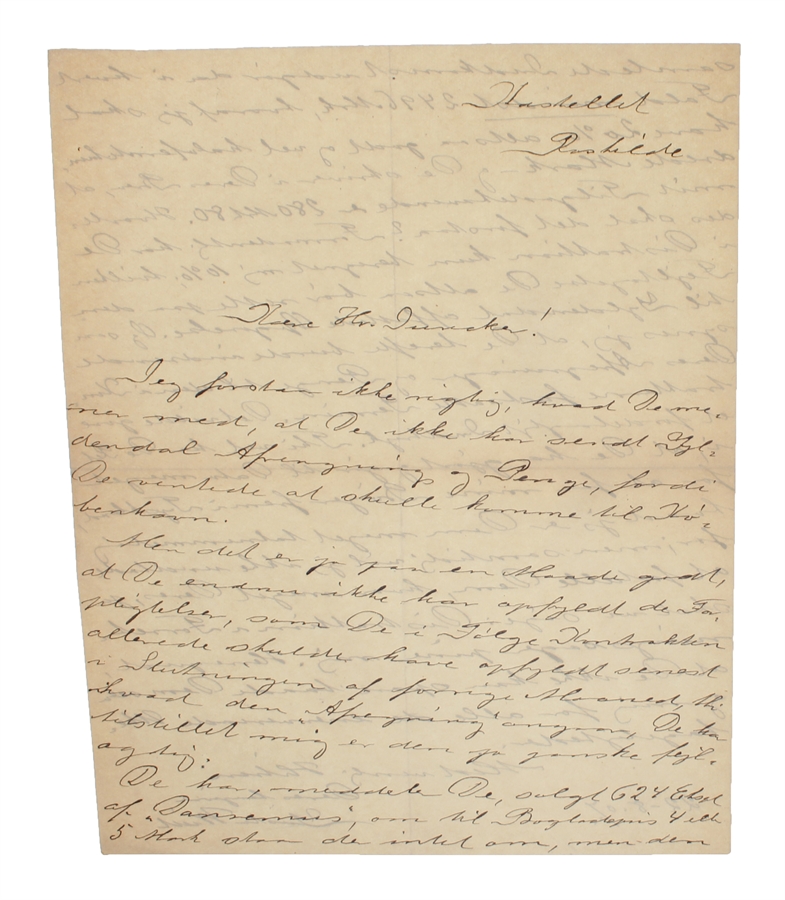 Kastellet
Roskilde
Kære Hr. Juncker!
Jeg forstaar ikke rigtig, hvad De me-
ner med, at De ikke har sendt Gyl-
dendal Afregning og Penge, fordi
De ventede at skulle komme til Kø-
benhavn.
Men det er jo paa en Maade godt,
at De endnu ikke har opfyldt de For
pligtelser, som De i Følge Kontrakten
allerede skulde have opfyldt senest
i Slutningen af forrige Maaned, thi
hvad den "Afregning" angaar, De har
tilstillet mig er den jo ganske fejl-
agtig:
De har, meddeler De, solgt 624 Ekspl
af "Dansemus", om til Bogladepris 4 eller
5 Mark staar der intet om, men den